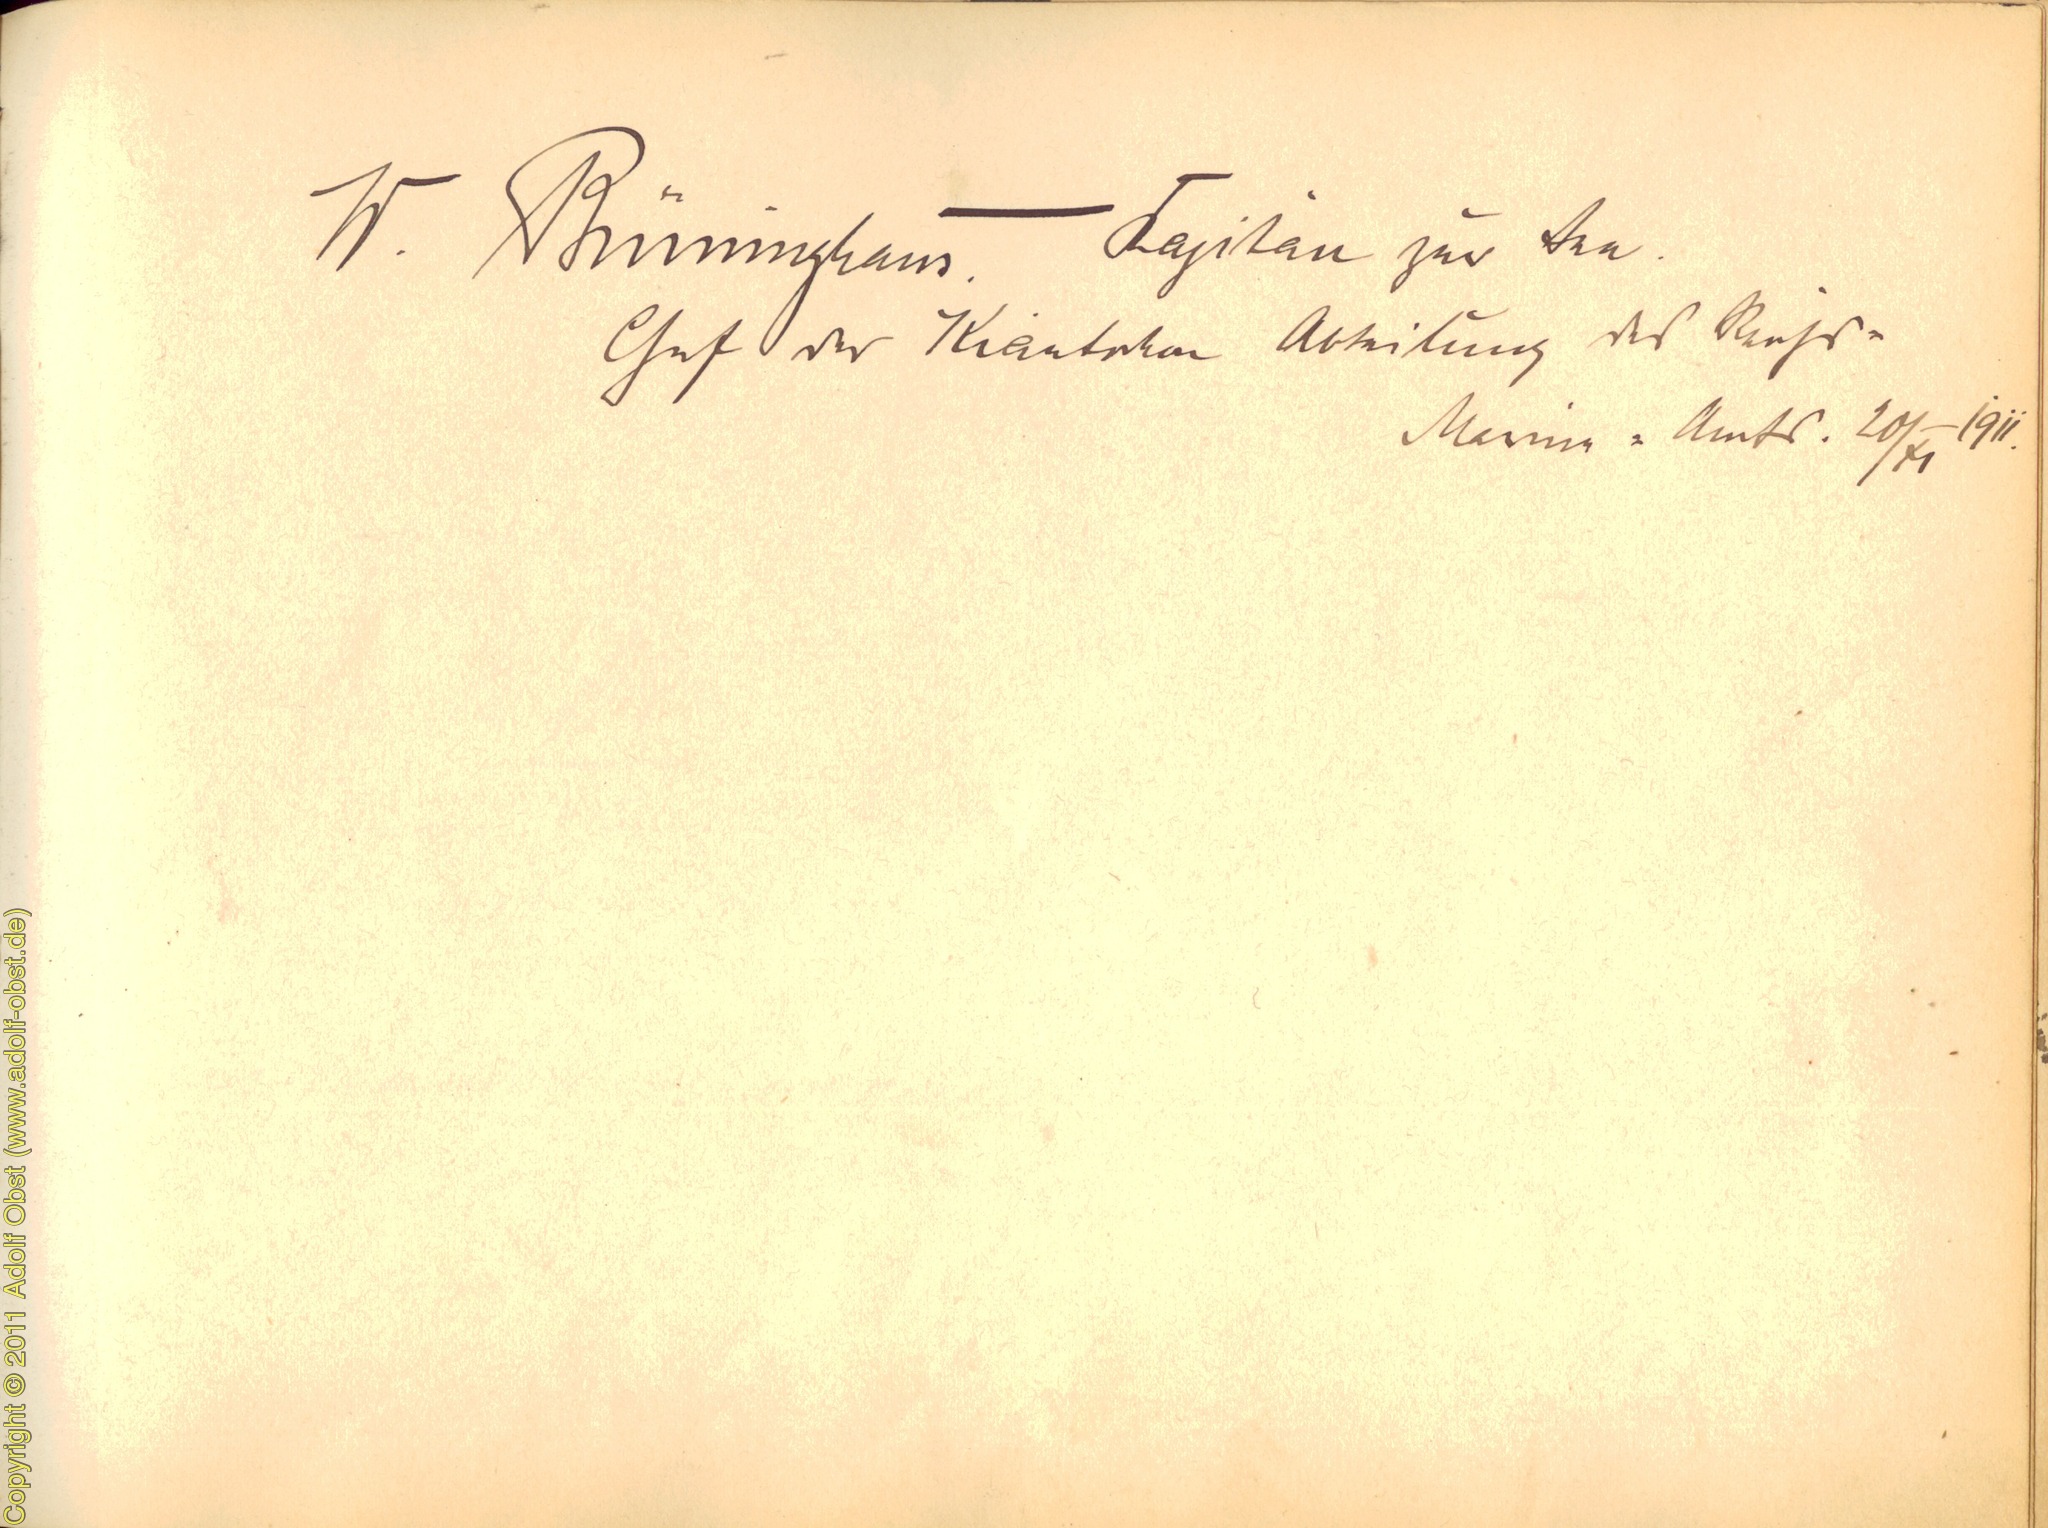 W. Brüninghaus. — Kapitän zur See.
Chef der Kiautschou Abteilung des Reichs-
Marine-Amts. 20/XI 1911.
Copyright © 2011 Adolf Obst (www.adolf-obst.de)